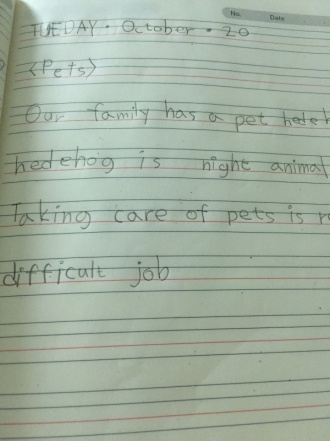 No. Date
TUEDAY · October · 20
<Pets>
Our family has a pet
hedehog is night animal
Taking care of pets is
difficult job